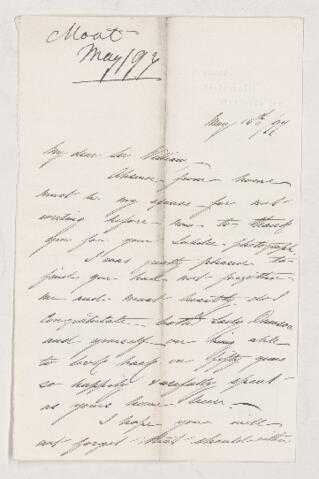 Moat
May/97
May 18th, 97
My dear Sir William
Absence from home
must be my excuse for not
writing before now to thank
you for your photograph
I was greatly pleased to
find you had not forgotten
me and most heartily do I
Congratulate both Lady Dawson
and yourself on being able
to look back on fifty years
so happily & usefully spent
as yours have been.
I hope you will
not forget that should either